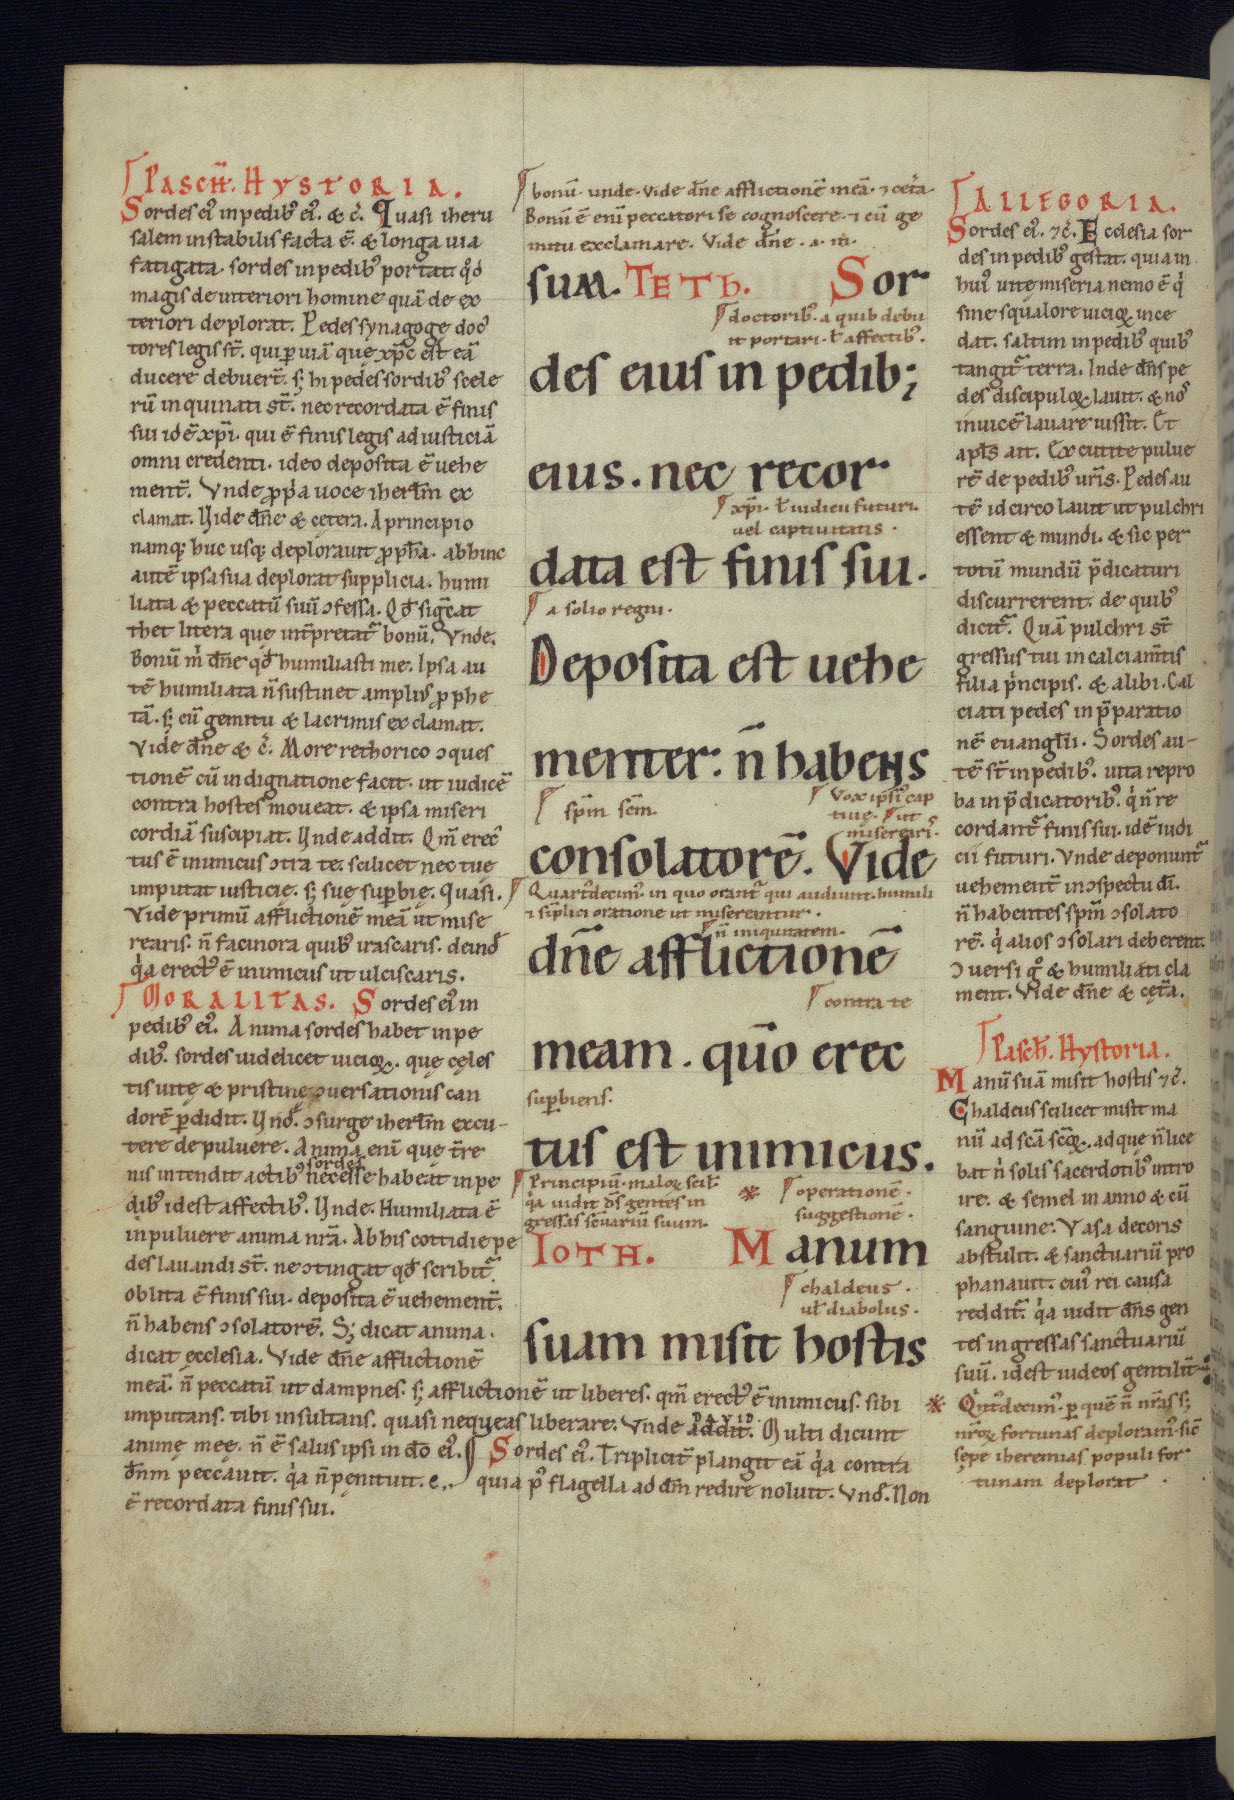 Pasch. Hystoria.
Sordes eiꝰ in pedibꝰ eiꝰ. & c̃. Quasi iheru
salem instabilis facta ē. & longa uia
fatigata. sordes in pedibꝰ portat qd̓
magis de interiori homine quā de ex
teriori deplorat. Pedes synagoge doc
tores legis st̃. qui ꝑ uiā que xp̄c est eā
ducere debuer̃t. s; hi pedes sordibꝰ scele
rū inquinati st̃. nec recordata ē finis
sui id ē xp̄i. qui ē finis legis ad iusticiā
omni credenti. ideo deposita ē uehe
ment̃. Vnde ꝓpria uoce iherl̃m ex
clamat. Vide dn̄e & cętera. A principio
namq; huc usq; deplorauit ꝓph̃a. abhinc
autē ipsa sua deplorat supplicia. humi
liata & peccatū suū ↄfessa. Qd̓ sig̃cat
thet litera que int̃pretat̃ bonū. Vnde.
Bonū m̓ dn̄e qd̓ humiliasti me. Ipsa au
tē humiliata n̄ sustinet ampliꝰ ꝓphe
tā. s; cū gemitu & lacrimis exclamat.
Vide dn̄e & c̃. More rethorico ↄques
tionē cū indignatione facit. ut iudicē
contra hostes moueat. & ipsa miseri
cordiā suscipiat. Vnde addit. Qm̄ erec
tus ē inimicus ↄtra te. scilicet nec tue
imputat iusticię. s; suę suꝑbię. Quasi.
Vide primū afflictionē meā ut mise
rearis. n̄ facinora quibꝰ irascaris. deind̓
q̓a erectꝰ ē inimicus ut ulciscaris.
Moralitas. Sordes eiꝰ in
pedibꝰ eiꝰ. Anima sordes habet in pe
dibꝰ. sordes uidelicet uicioꝝ. que cęles
tis uitę & pristinę ↄuersationis can
dorē ꝑdidit. Vnd̓. ↄsurge iherl̃m excu-
tere de puluere. Anima enī que t̃re
sordes
nis intendit actibꝰ necesse habeat in pe
dibꝰ id est affectibꝰ. Vnde. Humiliata ē
in puluere anima nr̃a. Ab his cottidie pe
des lauandi st̃. ne ↄtingat qd̓ scribit̃.
oblita ē finis sui. deposita ē uehement̃.
n̄ habens ↄsolatorē. S; dicat anima.
dicat ecclesia. Vide dn̄e afflictionē
meā. n̄ peccatū ut dampnes. s; afflictionē ut liberes. qm̄ erectꝰ ē inimicus. sibi
imputans. tibi insultans. quasi nequeas liberare. Vnde addit. Multi dicunt
DAVID.
animę meę. n̄ ē salus ipsi in do eiꝰ. Sordes eiꝰ. Triplicit̃ plangit eā q̓a contra
dn̄m peccauit. q̓a n̄ penituit. quia pꝰ flagella ad dn̄m redire noluit. Vnd̓. Non
ē recordata finis sui.
bonū. unde. Vide dn̄e afflictionē meā. ⁊ cet̃a.
Bonū ē enī peccatori se cognoscere. ⁊ cū ge
mitu exclamare. Vide dn̄e. a. m.
sum. Teth. Sor
doctoribꝰ. a quib debu
it portari. ł affectibꝰ.
des eius in pedib;
eius. nec recor
xp̄i. ł iudicii futuri.
uel captiuitatis.
data est finis sui.
a solio regni.
Deposita est uehe
menter. n̄ habens
sp̄m scm̄.
Vox ipsiꝰ cap
tiuę. ut
miserearis.
consolatorē. Vide
Quartꝰdecimꝰ. in quo orant̃ qui audiunt. humili
⁊ simplici oratione ut misereantur.
n̄ iniquitatem.
dn̄e afflictionē
contra te
meam. quō erec
suꝑbiens.
tus est inimicus.
Principiū. maloꝝ scił
q̓a uidit ds̄ gentes in
gressas sc̃uariū suum.
operationē.
suggestionē.
Ioth. Manum
chaldeus.
uł diabolus.
suam misit hostis
Allegoria.
Sordes eiꝰ. ⁊ c̃. Ecclesia sor
des in pedibꝰ gestat. quia in
huiꝰ uitę miseria nemo ē q̓
sine squalore uicioꝝ ince
dat. saltim in pedibꝰ quibꝰ
tangit̃ terra. Inde dn̄s pe
des discipuloꝝ lauit. & nos
inuicē lauare iussit. Et
apłs ait. Excutite pulue
rē de pedibꝰ ur̃is. Pedes au
tē idcirco lauit ut pulchri
essent & mundi. & sic per
totū mundū p̄dicaturi
discurrerent. de quibꝰ
dicit̃. Quā pulchri st̃
gressus tui in calciam̄tis
filia p̓ncipis. & alibi. Cal
ciati pedes in p̄paratio
nē euanglii. Sordes au-
tē st̃ in pedibꝰ. uita repro
ba in p̄dicatoribꝰ. q̓ n̄ re
cordant̃ finis sui. id ē iudi
cii futuri. Vnde deponunt̃
uehement̃ in ↄspectu dī.
n̄ habentes sp̄m ↄsolato
rē. q̓ alios ↄsolari deberent.
ↄuersi g̊ & humiliati cla
ment. Vide dn̄e & cęt̃a.
Pasch. Hystoria.
Manū suā misit hostis ⁊ c̃.
Chaldeus scilicet misit ma
nū ad scā scōꝝ. ad que n̄ lice
bat n̓ solis sacerdotibꝰ intro
ire. & semel in anno & cū
sanguine. Vasa decoris
abstulit. & sanctuariū pro
phanauit. cuiꝰ rei causa
reddit̃. q̓a uidit dn̄s gen
tes ingressas sanctuariū
suū. id est iudeos gentiliū
Qntꝰdecimꝰ. ꝑ quē n̄ nr̃as s;
nr̃oꝝ fortunas deploramꝰ. sic̄
sępe iheremias populi for
tunam deplorat.